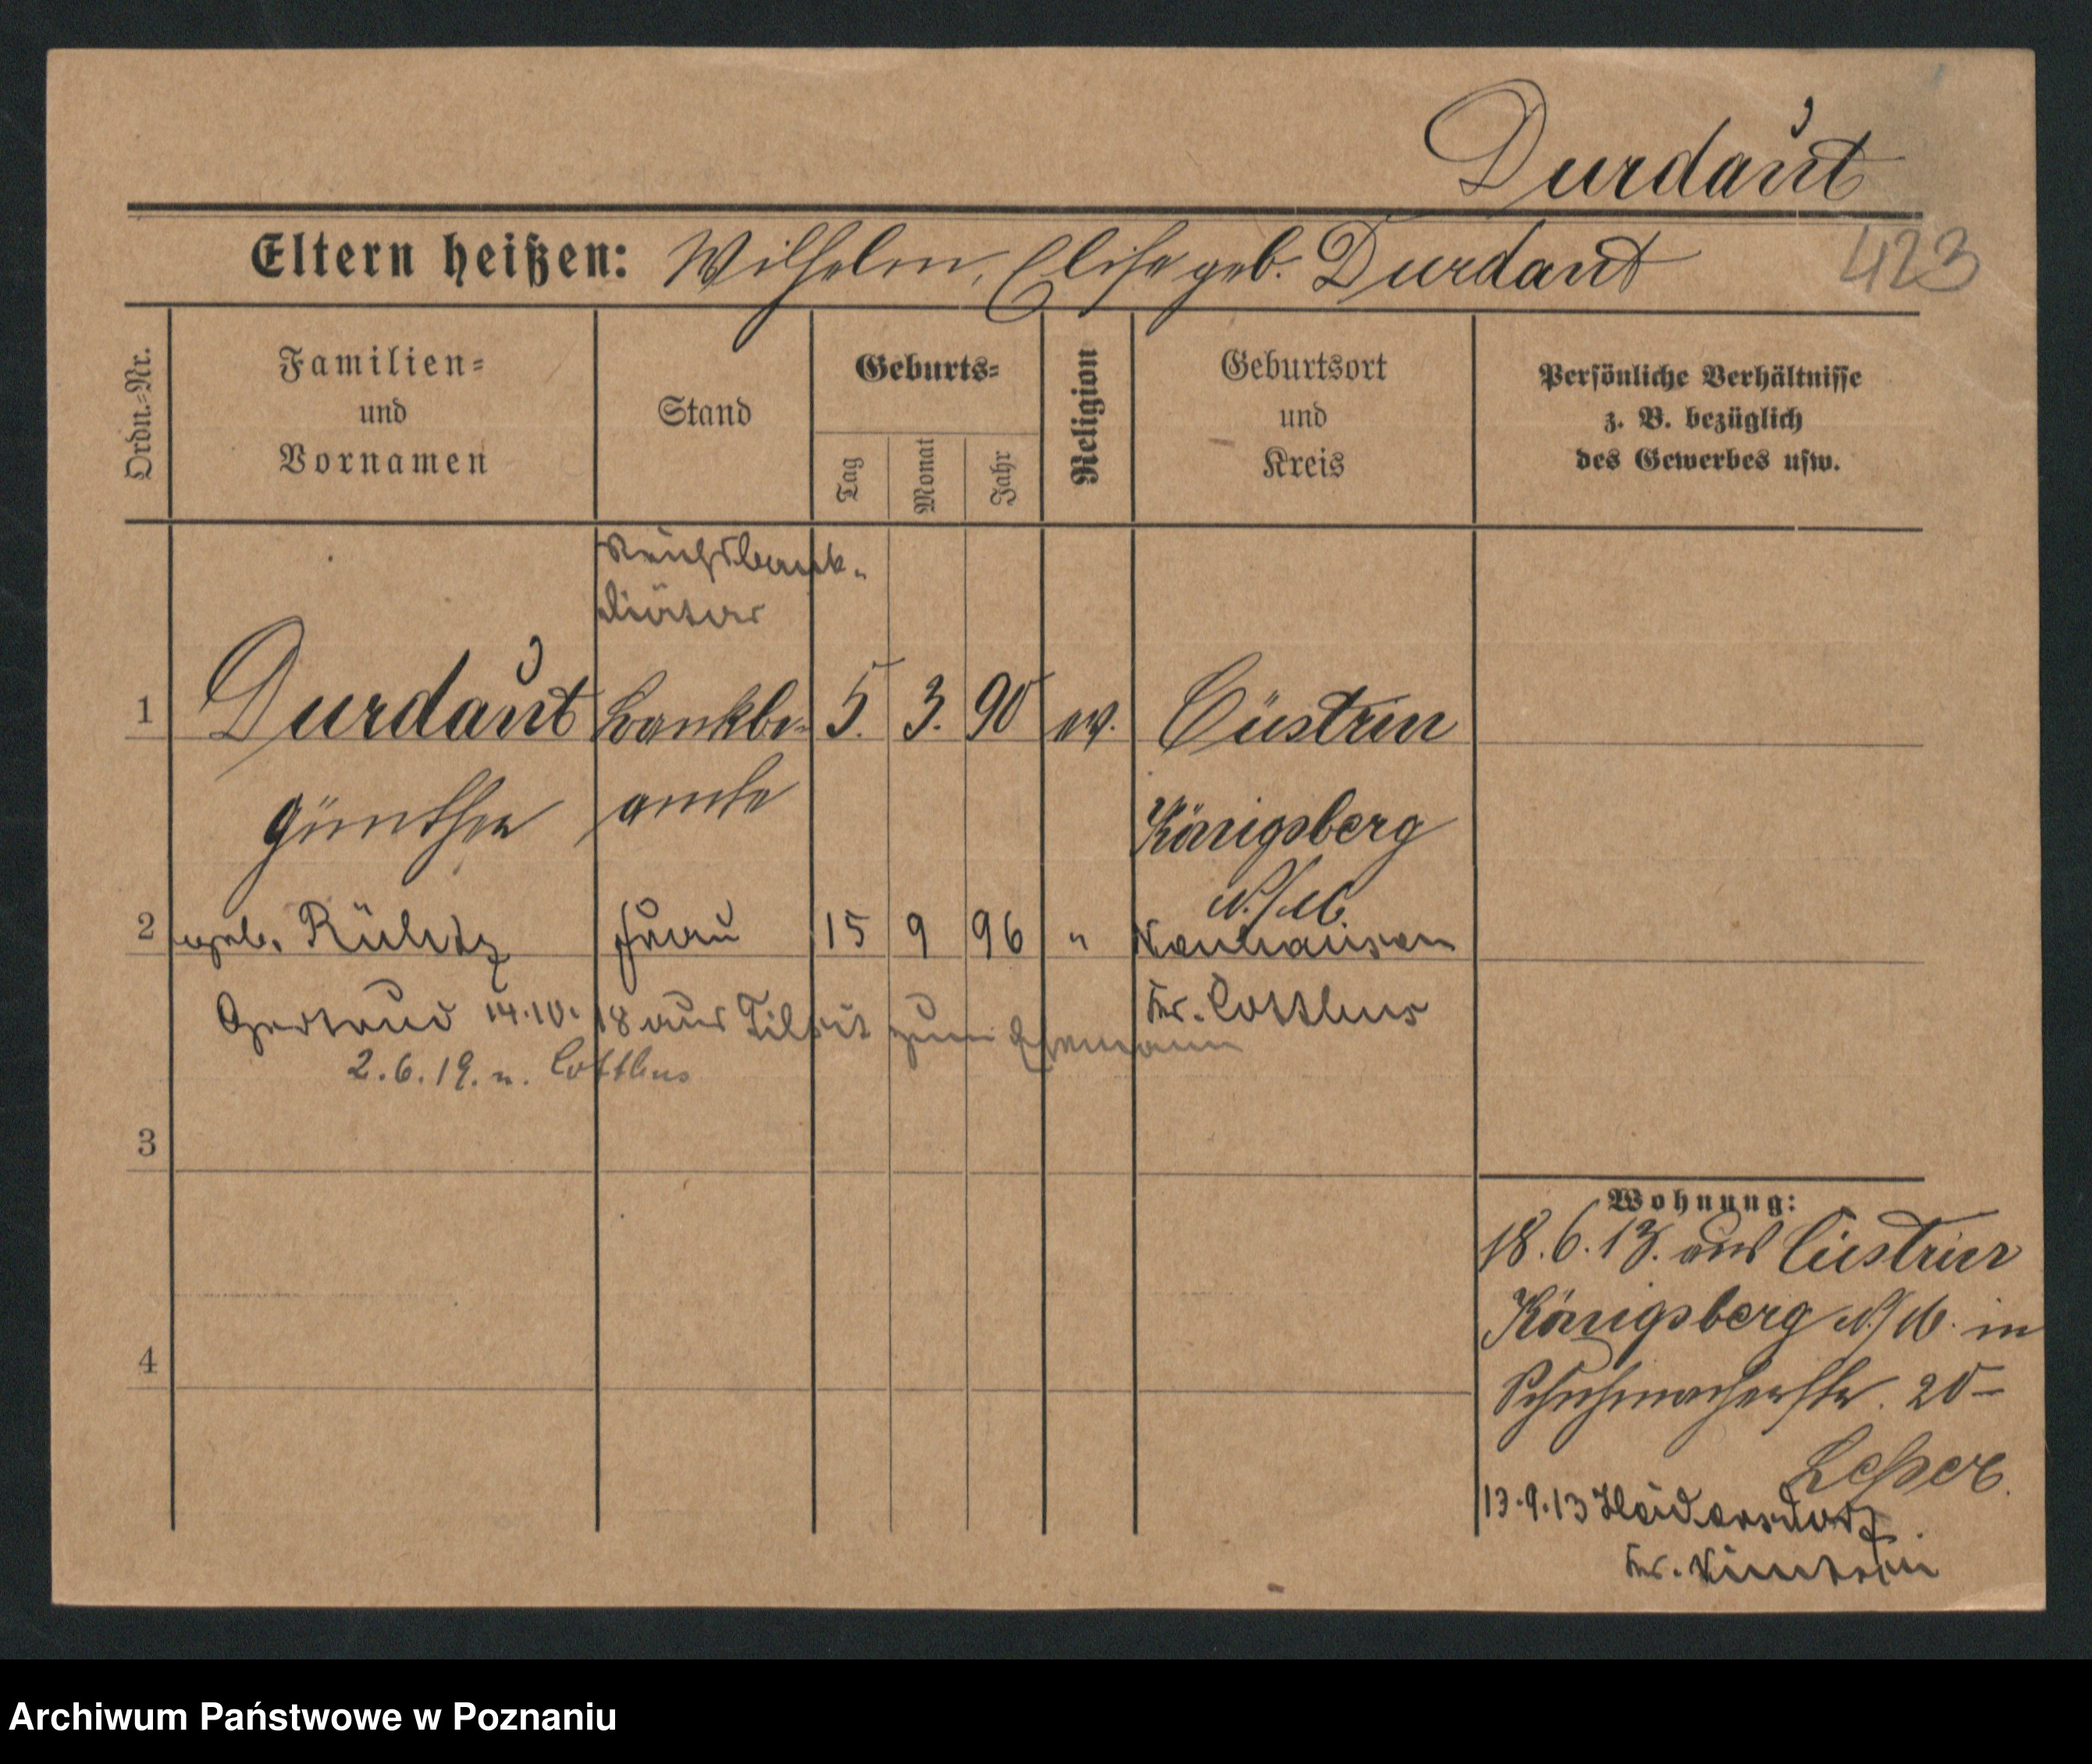 Durdaut
Eltern heißen: Wilhelm, Elise geb. Durdaut
423
Ordn.-Nr.
Familien-
und
Vornamen
Stand
Geburts-
Tag
Monat
Jahr
Religion
Geburtsort
und
Kreis
Persönliche Verhältnisse
z. B. bezüglich
des Gewerbes usw.
Reichsbank-
diätar
1 Durdaut Bankbe- 5. 3. 90 ev. Cüstrin
Günther amte Königsberg
N./M.
2 geb. Frau 15 9 96 " Neuhausen
Gertrud 14.10.18 aus Tilsit zum Ehemann Kr. Cottbus
2.6.19. n. Cottbus
3
4
Wohnung:
18.6.13. aus Cüstrin
Königsberg N./M. in
Schuhmacherstr. 20
13.9.13 Heidersdorf
Kr. Nimptsch
Archiwum Państwowe w Poznaniu